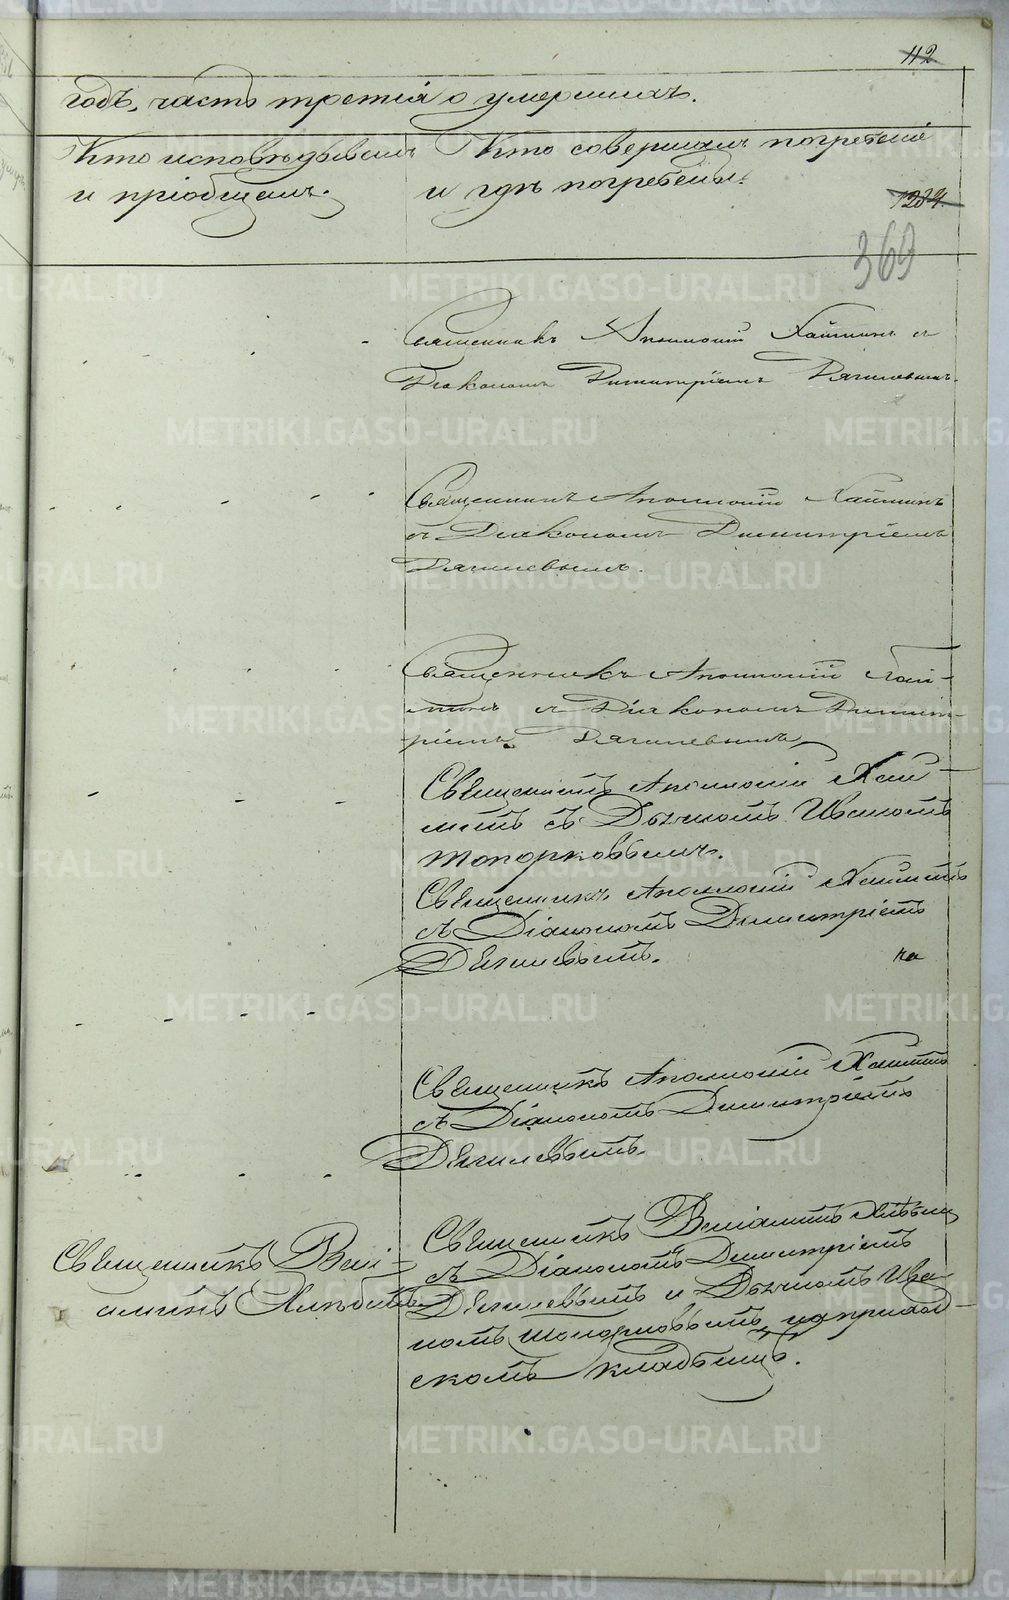 112
годъ, часть третія о умершихъ.
Кто исповѣдывалъ
и пріобщалъ.
Кто совершалъ погребеніе
и гдѣ погребены.
1234.
369
Священникъ Аполлоній Хаймин с
Діакономъ Димитріемъ Дягилевымъ.
Священникъ Аполлоній Хайминъ
съ Діакономъ Димитріемъ
Дягилевымъ.
Священникъ Аполлоній Хай-
минъ с Діакономъ Димит-
ріемъ Дягилевымъ,
Священникъ Аполлоній Хай-
минъ съ Дьячкомъ Иваномъ
Топорковымъ.
Священникъ Аполлоній Хайминъ
съ Діакономъ Димитріемъ
Дягилевымъ.
на
Священникъ Аполлоній Хайминъ
съ Діакономъ Димитріемъ
Дягилевымъ.
Священникъ Вені-
аминъ Хлѣбинъ
Священникъ Веніаминъ Хлѣбин
съ Діакономъ Димитріемъ
Дягилевымъ и Дьячкомъ Ива
номъ Топорковымъ, на приход-
скомъ кладбищѣ.
METRIKI.GASO-URAL.RU